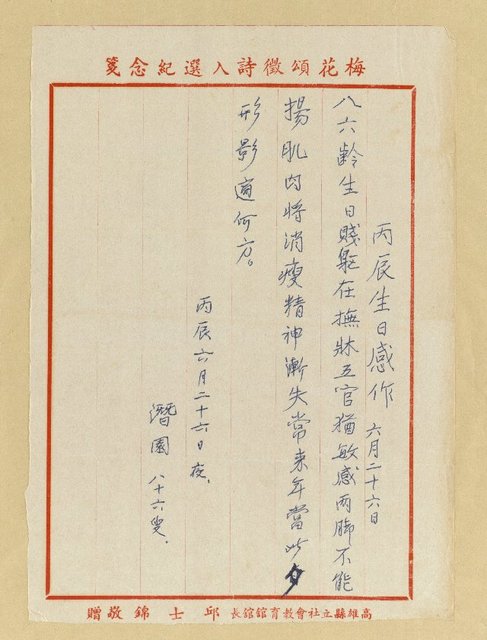 梅花頌徵詩入選紀念箋
丙辰生日感作 六月二十六日
八六齡生日賤軀在撫牀五官猶敏感兩脚不能
揚肌肉将消瘦精神漸失常来年當此夕
形影適何方。
丙辰六月二十六日夜.
潛園 八十六叟.
高雄縣立社會教育館館長 邱士錦敬贈